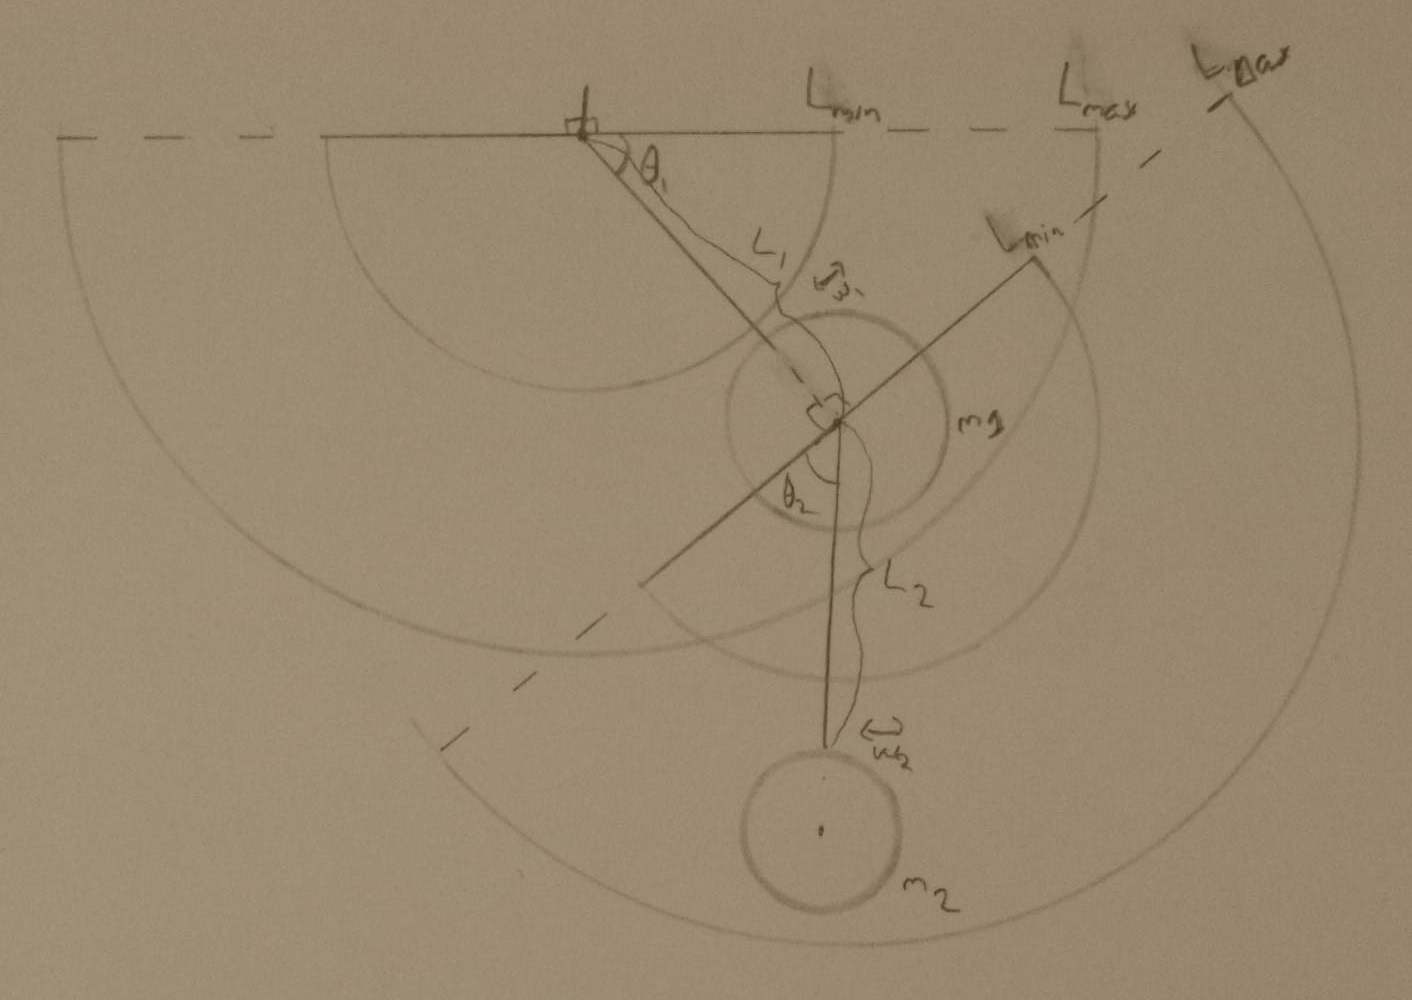 L min
L max
L max
θ1
L1
L min
w1
m1
θ2
L2
w2
m2